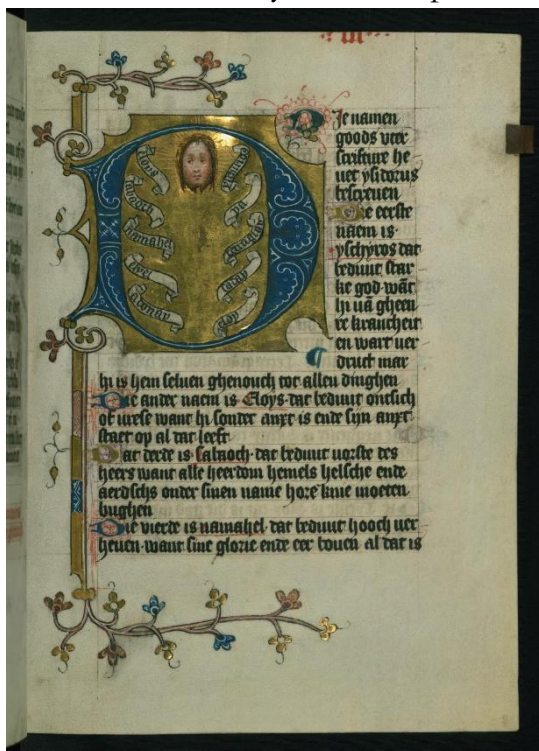 3
Je namen
goods veer
scrifture he
uet ysidorus
bescreuen
De eerste
naem is
yschyros dat
beduut star
ke god want
hi uā gheen
re krancheit
en wart ver
druct mar
hi is hem seluen ghenouch tot allen dinghen
Die ander naem is Eloys dat beduut ontsich
of urese want hi sonder anxt is ende sijn anxt
staet op al dat leeft
Dat derde is sabaoth dat beduut vorste des
heers want alle heerdom hemels helsche ende
aerdschs onder sinen name hore knie moeten
bughen
Die vierde is namahel dat beduut hooch ver
heuen want sine glorie ende eer bouen al dat is